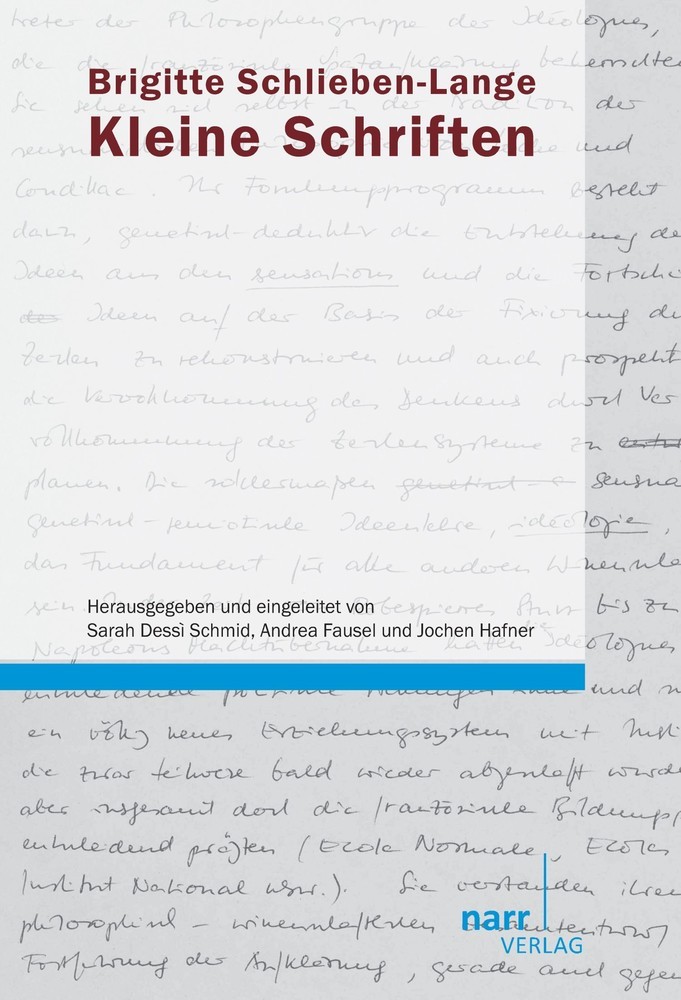 treter der Philosophengruppe der Idéologues,
die die französische Spätaufklärung beherrschte
Brigitte Schlieben-Lange
Sie sehen sich selbst in der Tradition der
Kleine Schriften
und
Condillac. Ihr Forschungsprogramm besteht
darin, genetisch-deduktiv die Entstehung de
Ideen aus den sensations und die Fortsch
des Ideen auf der Basis der Fixierung du
Zeichen zu rekonstruieren und auch prospekt
die Vervollkommnung des Denkens durch Ver
vollkommnung der Zeichensysteme zu
planen. Die solchermaßen genetisch sensua
genetisch-semiotische Ideenlehre, idéologie,
das Fundament für alle anderen Wissenscha
sein.
Herausgegeben und eingeleitet von
bis zu
Sarah Dessì Schmid, Andrea Fausel und Jochen Hafner
Napoleons Machtübernahme hatten die Idéologues
entscheidende politische und
ein völlig neues Erziehungssystem mit Insti
die zwar teilweise bald wieder abgeschafft wurde
aber insgesamt doch die französische Bildungs
entscheidend prägten (Ecole Normale, Ecoles
Institut National usw.). Sie verstanden ihren
philosophisch-wissenschaftlichen
narr
VERLAG
Fortführung der Aufklärung, gerade auch gegen